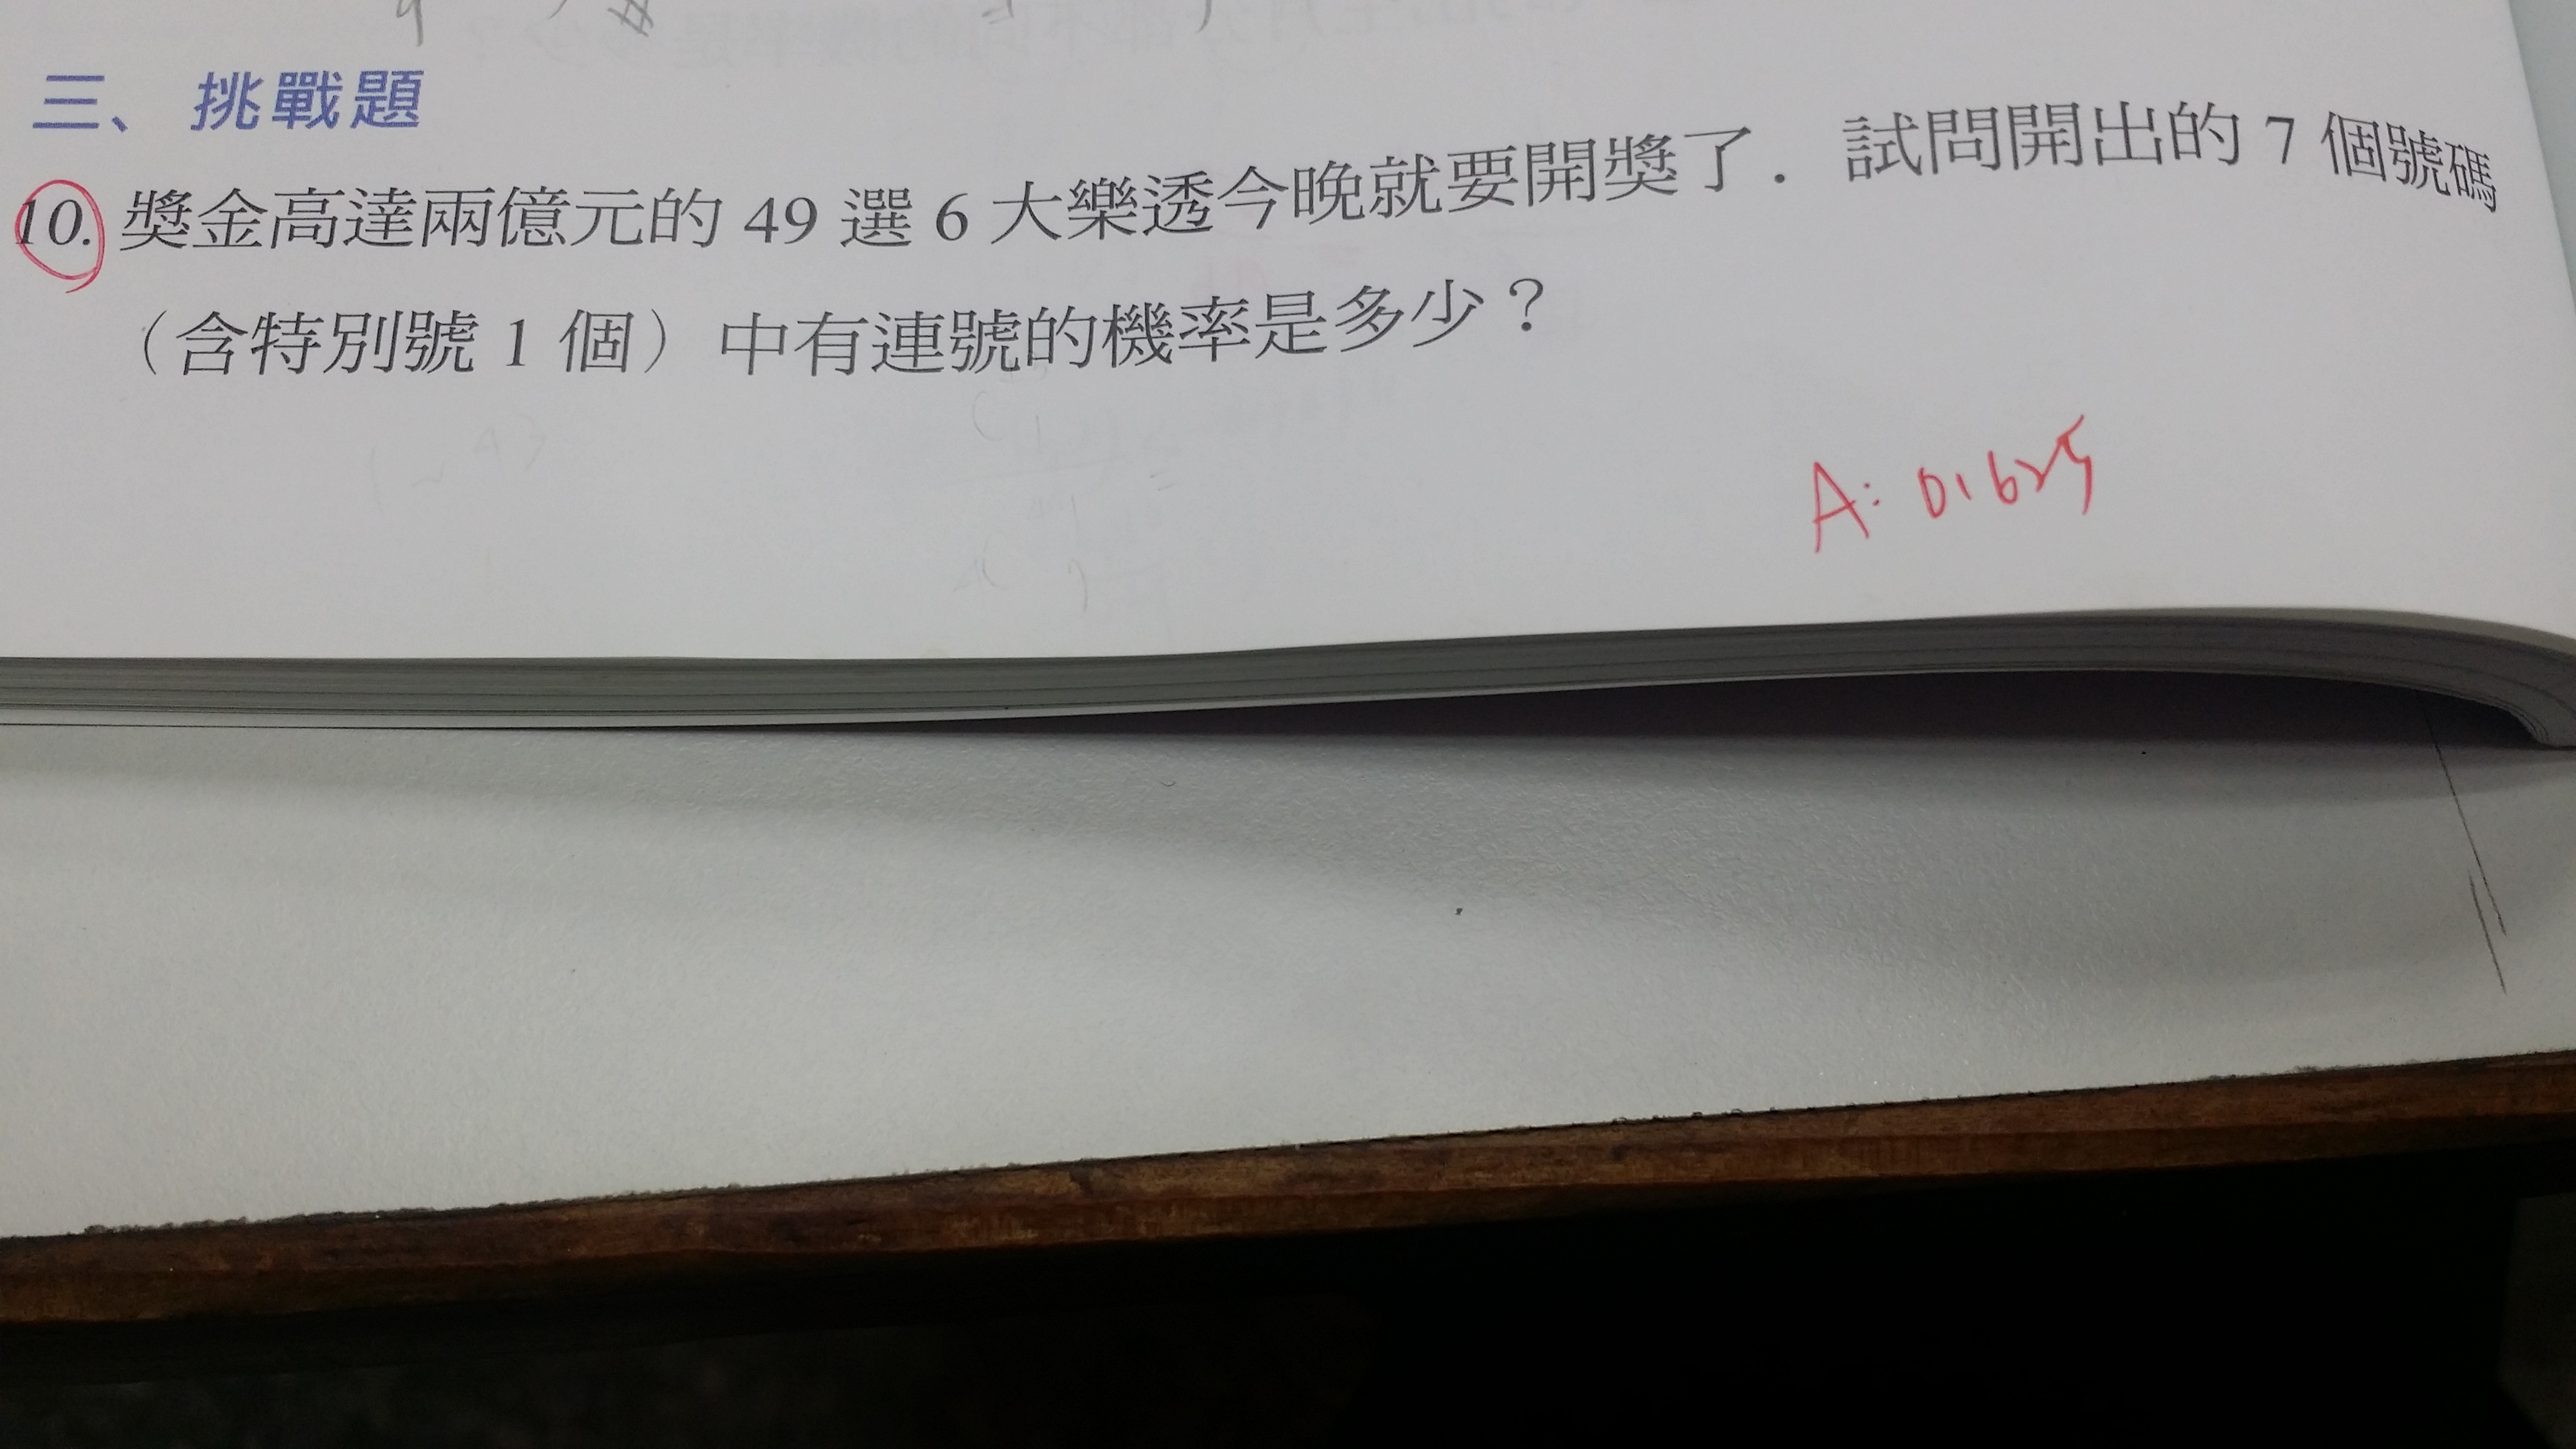 三、挑戰題
10. 獎金高達兩億元的 49 選 6 大樂透今晚就要開獎了．試問開出的 7 個號碼
（含特別號 1 個）中有連號的機率是多少？
A: 0.625